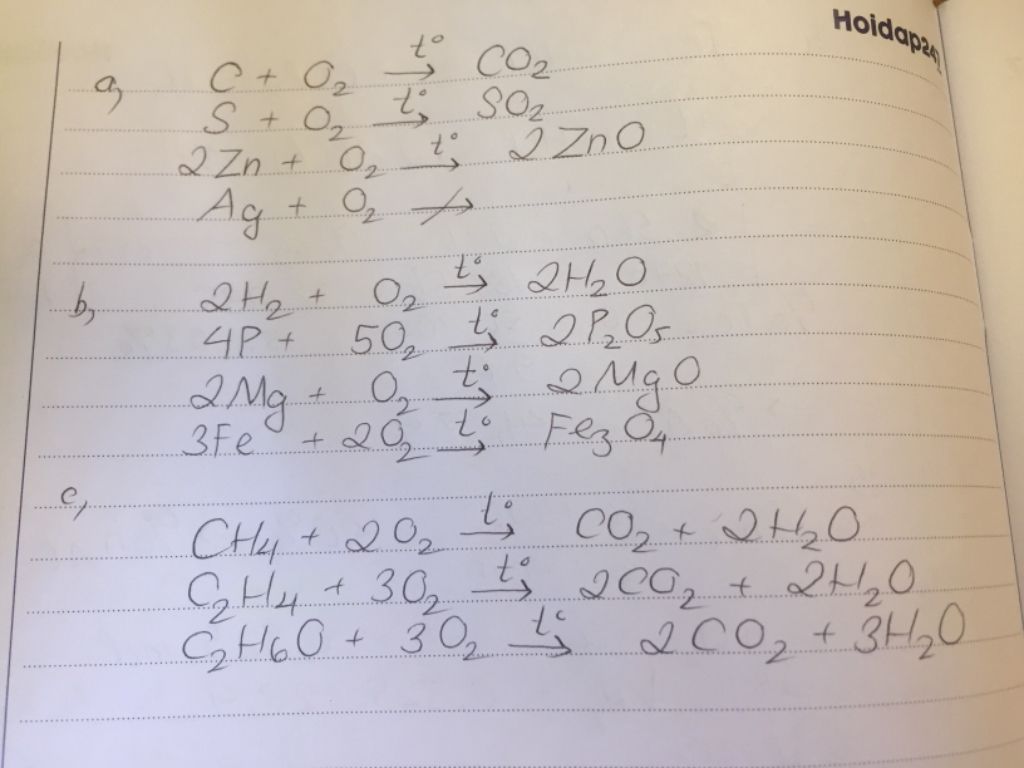 Hoidap247
a, C + O₂ →(t°) CO₂
S + O₂ →(t°) SO₂
2Zn + O₂ →(t°) 2ZnO
Ag + O₂ ↛
b, 2H₂ + O₂ →(t°) 2H₂O
4P + 5O₂ →(t°) 2P₂O₅
2Mg + O₂ →(t°) 2MgO
3Fe + 2O₂ →(t°) Fe₃O₄
c,
CH₄ + 2O₂ →(t°) CO₂ + 2H₂O
C₂H₄ + 3O₂ →(t°) 2CO₂ + 2H₂O
C₂H₆O + 3O₂ →(t°) 2CO₂ + 3H₂O